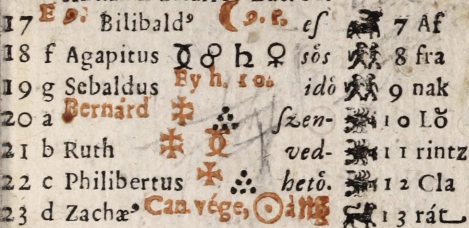 17 E 9. Bilibald⁹ ☾ 9. P. eſ 7 Af
18 f Agapitus ☿ ♂ ♄ ♀ sős 8 fra
19 g Sebaldus Fy h. 10. idő 9 nak
20 a Bernárd ✠ ſzen- 10 Lŏ
21 b Ruth ✠ ☿ ved- 11 rintz
22 c Philibertus ✠ hető. 12 Cla
23 d Zachæ⁹ Can. vége, ☉ á ♍ 13 rát